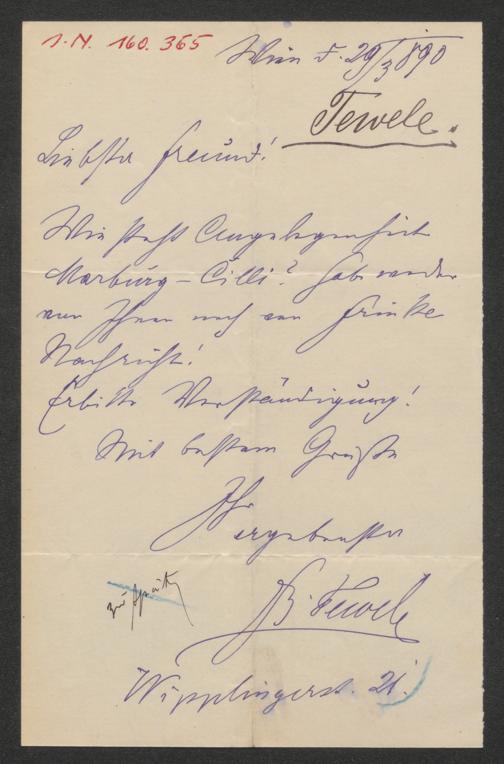 I.N. 160.365
Wien d. 29/3 890
Tewele.
Liebster Freund!
Wie steht Angelegenheit
Marburg – Cilli? Habe weder
von Ihnen noch von Frinke
Nachricht!
Erbitte Verständigung!
Mit bestem Gruße
Ihr
ergebenster
F. Tewele
zu spät
Wipplingerst. 21.